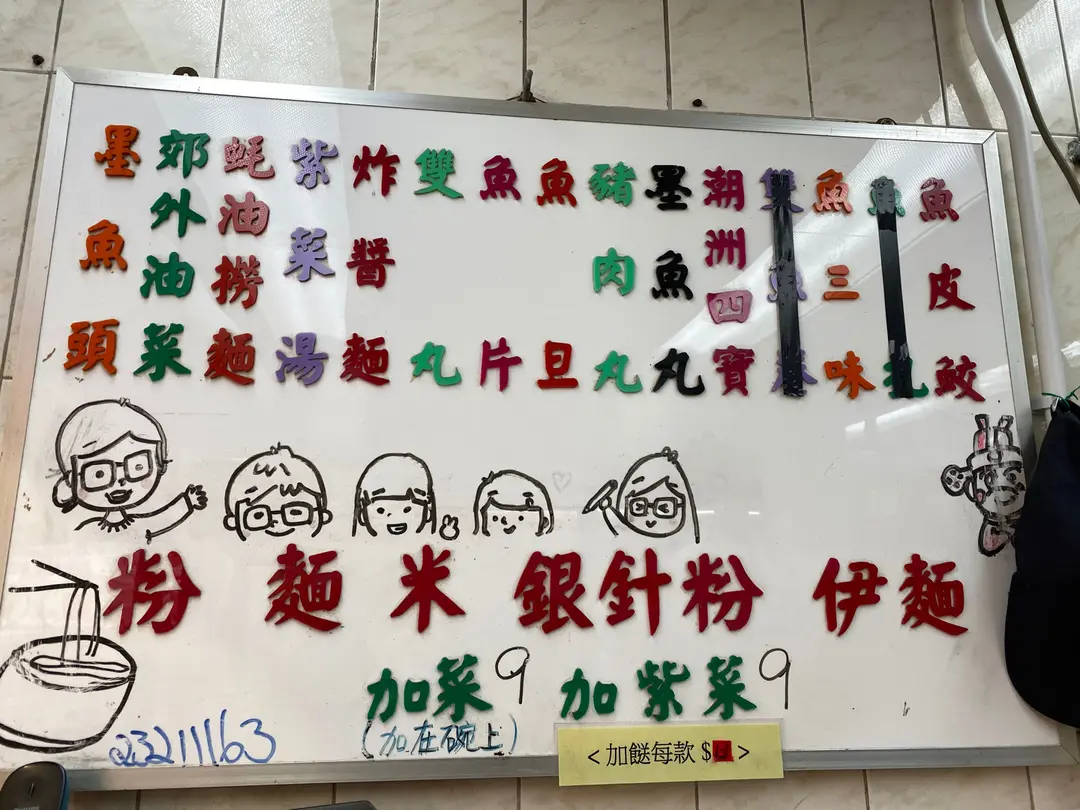 魚皮鮫
魚
魚三味
雙魚
潮洲四寶
墨魚丸
豬肉丸
魚旦
魚片
雙丸
炸醬麵
紫菜湯
蚝油撈麵
郊外油菜
墨魚頭
粉 麵 米 銀針粉 伊麵
加菜9 加紫菜9
(加在碗上)
23211163
<加餸每款 $ >